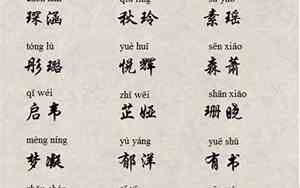 琛涵 秋玲 素瑶
tóng lù yuè huī sēn xiāo
彤璐 悦辉 森萧
qǐ wéi shān xiǎo
启韦 芷娅 珊晓
mèng níng yù yáng shū
梦凝 郁洋 有书